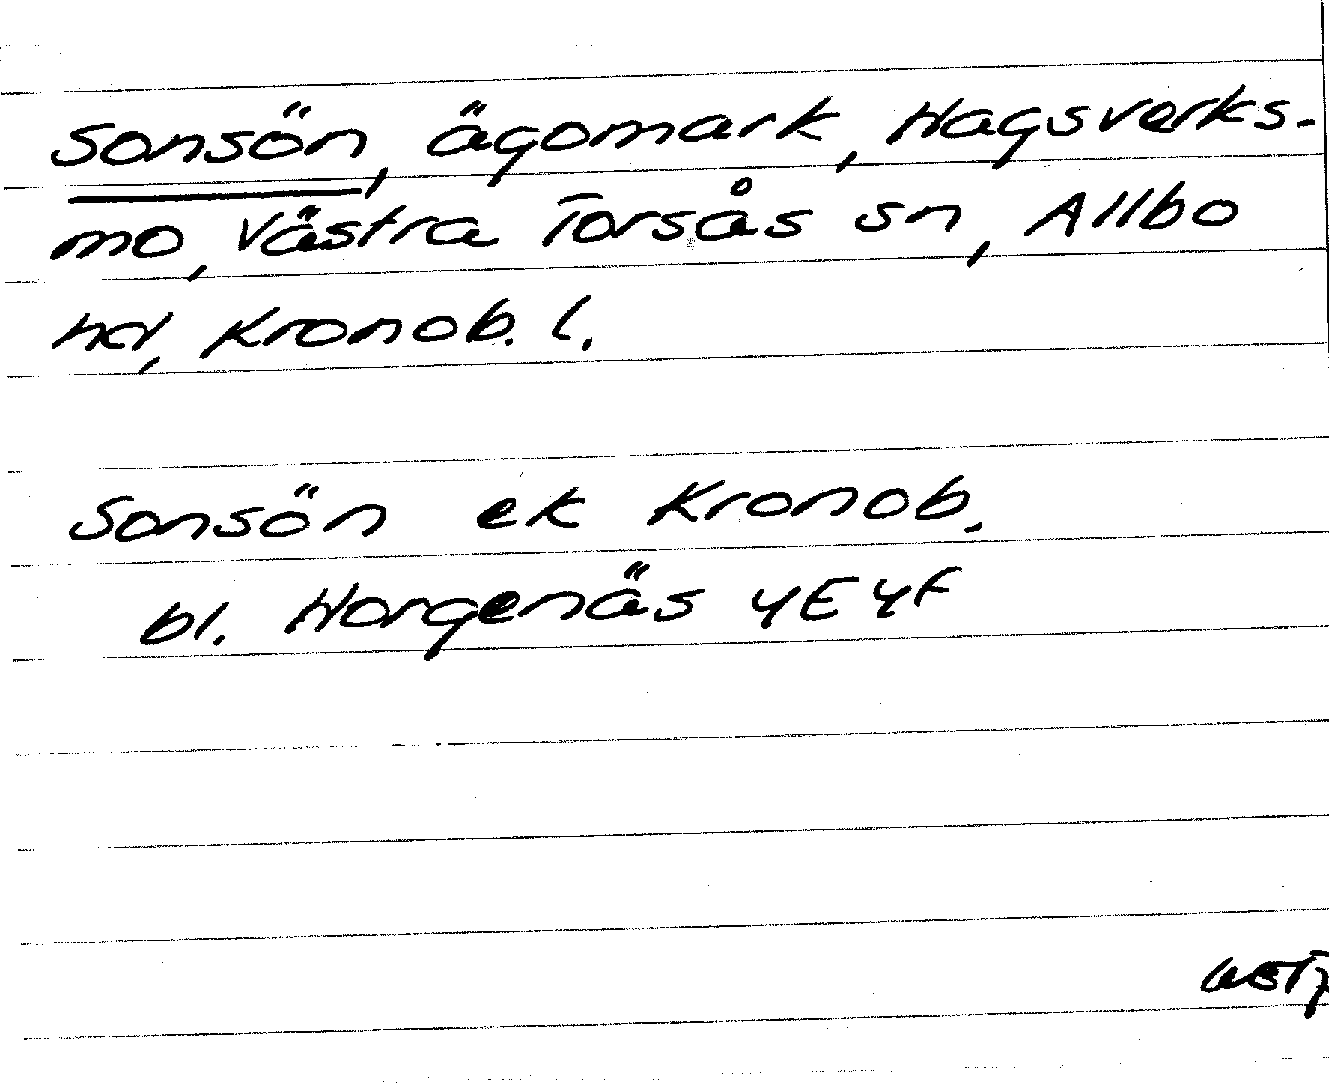 Sonsön, ägomark, Hagsverks-
mo, Västra Torsås sn, Allbo
hd, Kronob. l.
Sonsön ek Kronob.
bl. Horgenäs 4E4f